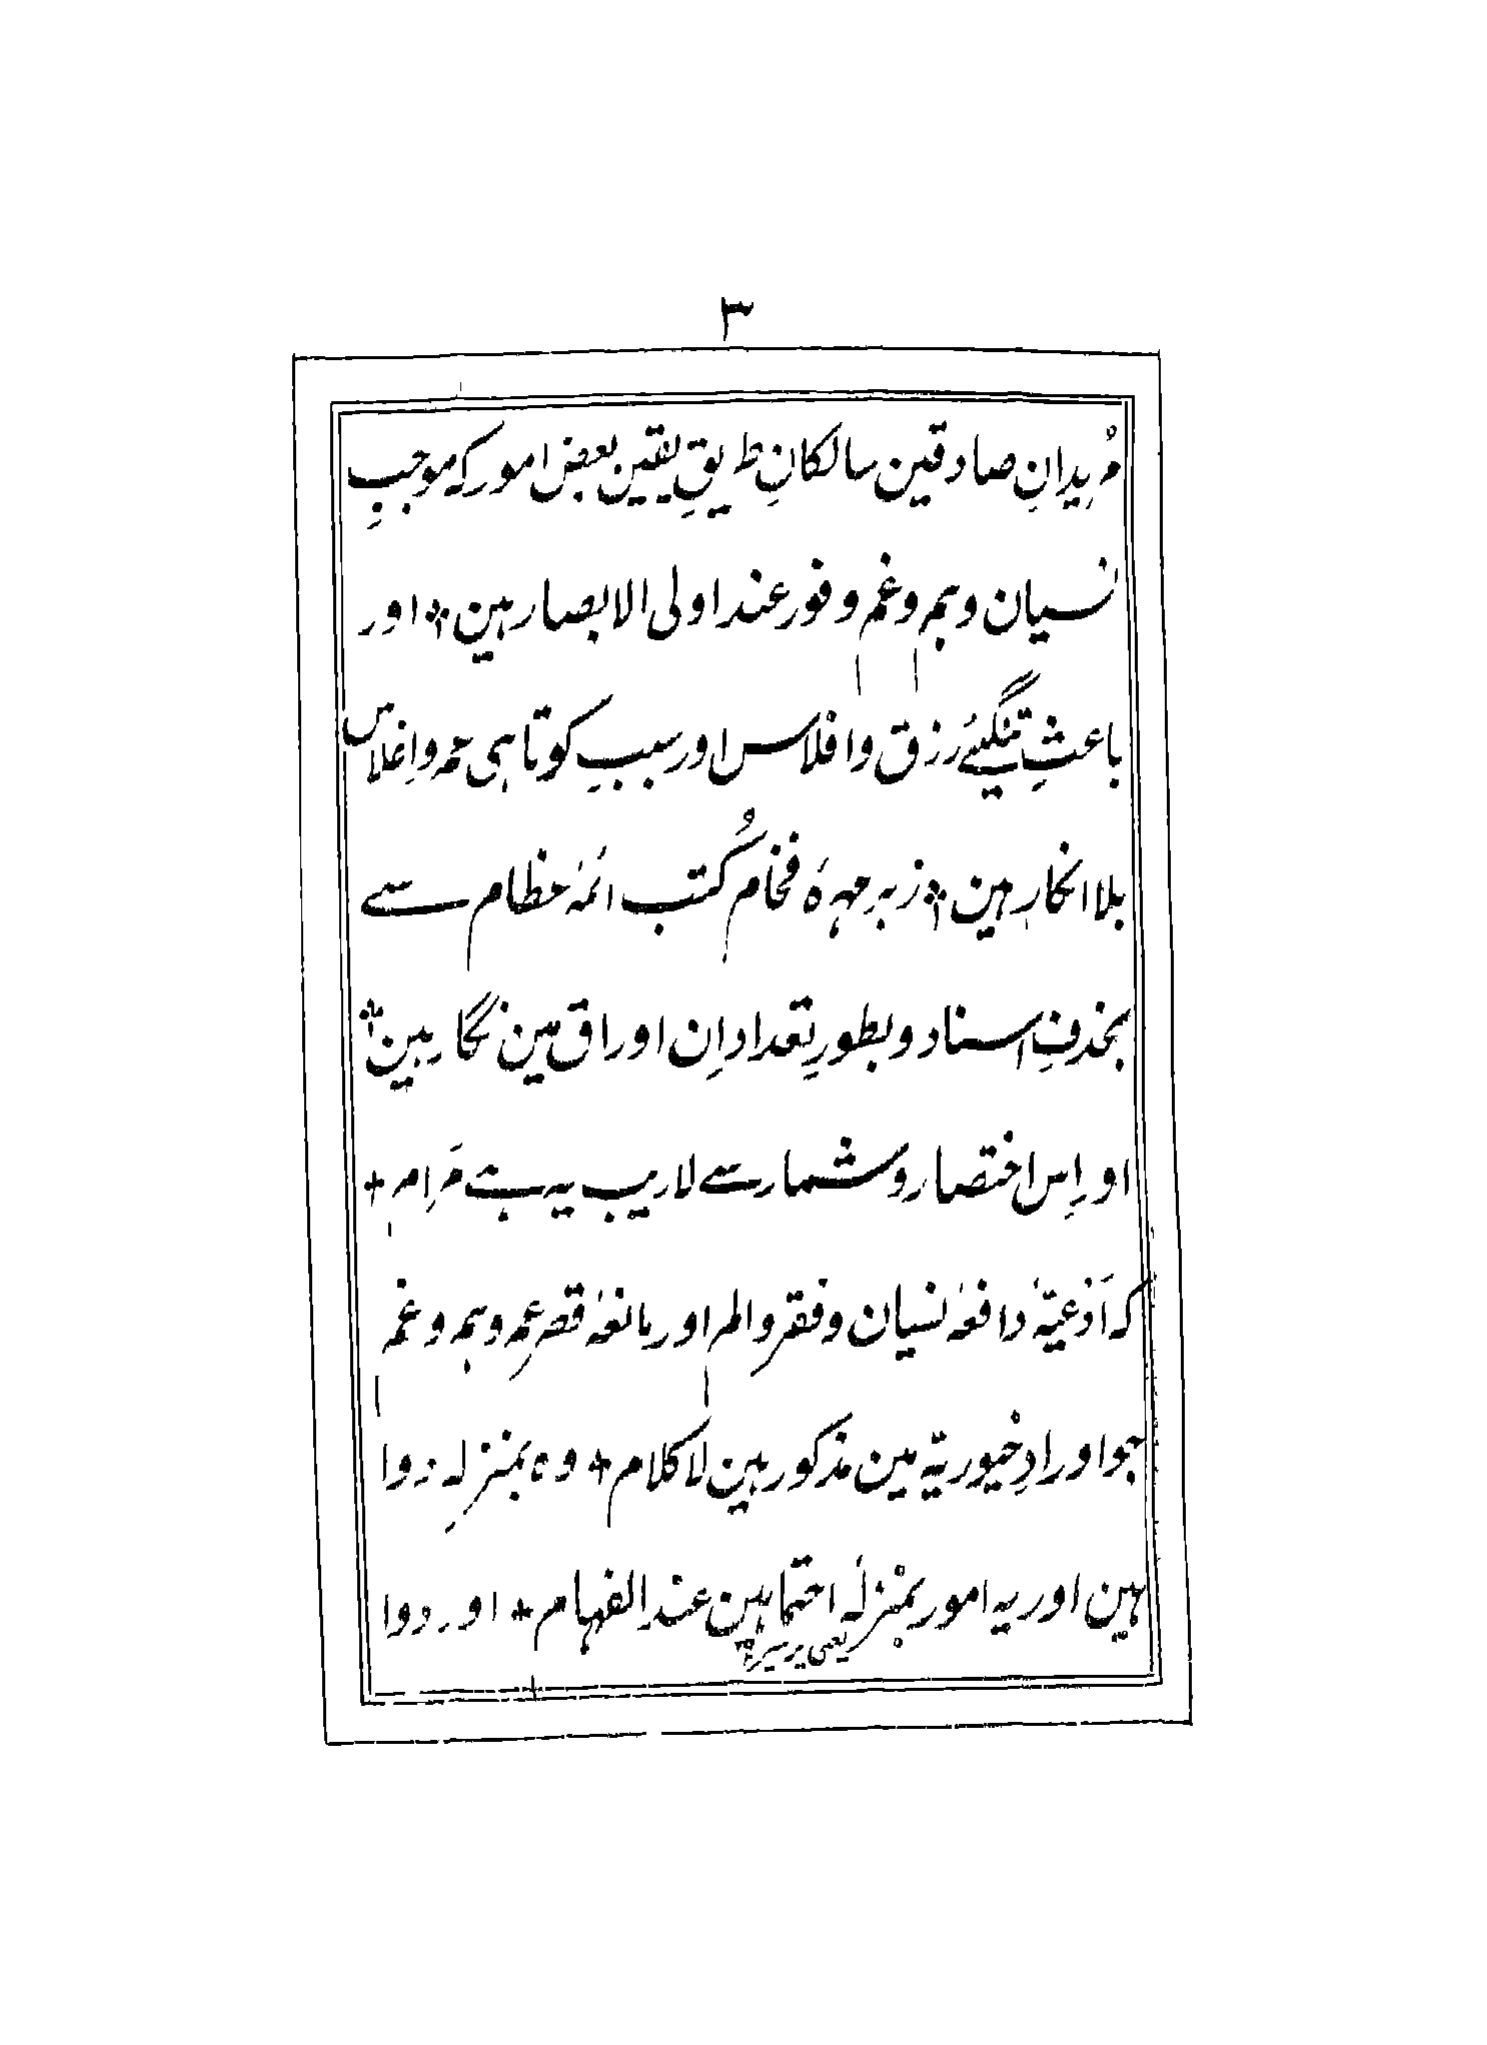 ۳
مُریدانِ صادقین سالکانِ طریقِ یقین بعض امور کہ موجبِ
نسیان و ہم و غم و فور عند اولی الابصار ہین ؞ اور
باعثِ تنگیٔے رزق و افلاس اور سببِ کوتاہی عمر و اغلاس
بلا انکار ہین ؞ زبر جہرۂ فخام کُتب ائمۂ عظام سے
بحذفِ اسناد و بطورِ تعداد اِن اوراق مین نگار ہین ؞
اور اِس اختصار و شمار سے لاریب یہ ہے مَرام +
کہ اَدْعیَّۂ دافعۂ نسیان و فقر و الم اور مانعۂ قصرِ عمر و ہم و غم
جو اورادِ خیوریّہ مین مذکور ہین لا کلام + وہ بمنزلہ دوا
ہین اور یہ امور بمنزلۂ احتما ہین عند الفہام + اور دوا
یعنی پرہیز